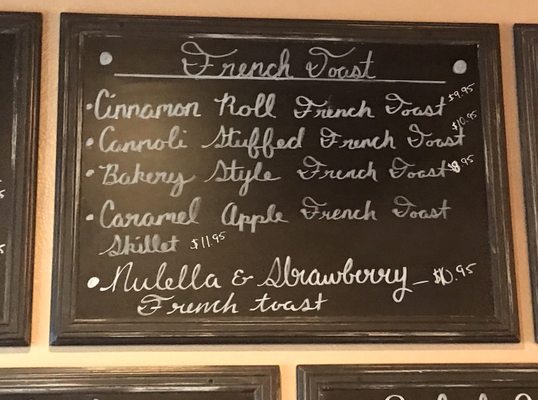 French Toast
• Cinnamon Roll French Toast $9.95
• Cannoli Stuffed French Toast $10.95
• Bakery Style French Toast $8.95
• Caramel Apple French Toast
Skillet $11.95
• Nutella & Strawberry - $10.95
French toast